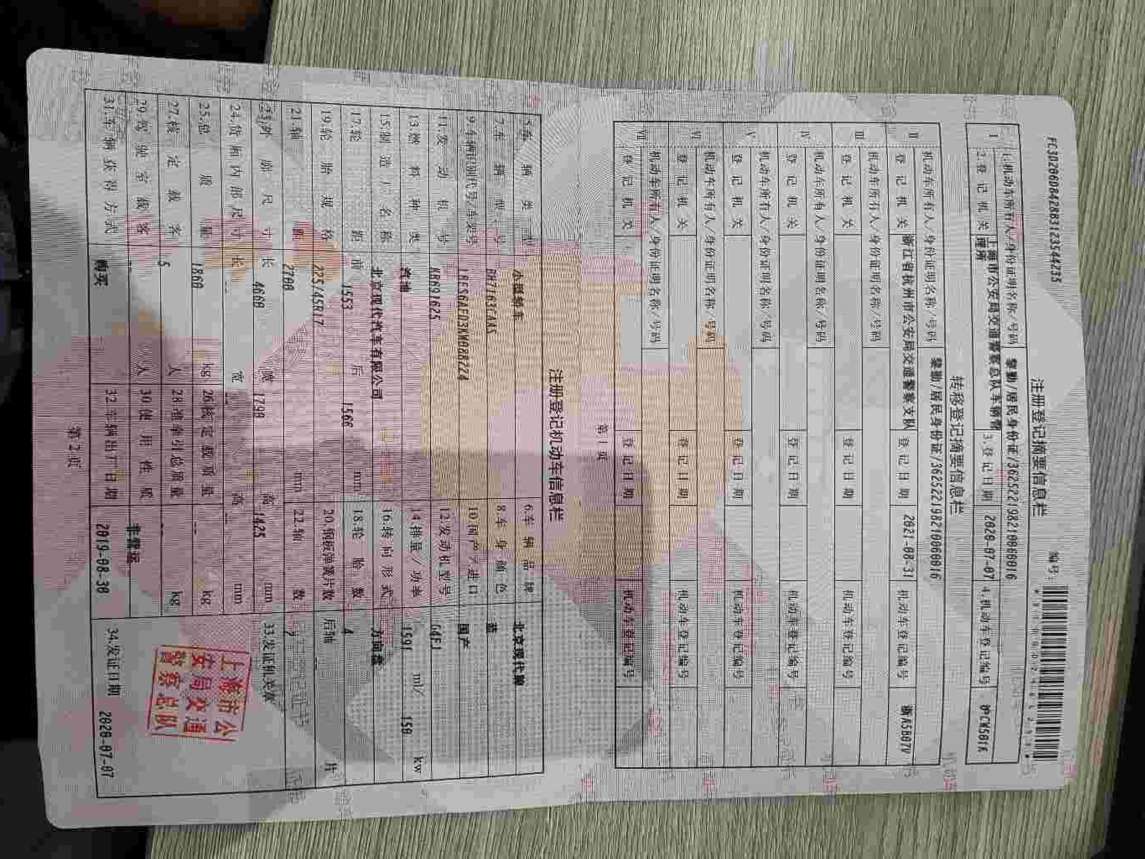 FC3D206D842883123544235
注册登记摘要信息栏
编号:
Ⅰ 1.机动车所有人/身份证明名称/号码 黎勤/居民身份证/362522198210060016
2.登记机关 上海市公安局交通警察总队车辆管理所 3.登记日期 2020-07-07 4.机动车登记编号 沪CW501K
转移登记摘要信息栏
Ⅱ 机动车所有人/身份证明名称/号码 黎勤/居民身份证/362522198210060016
登记机关 浙江省杭州市公安局交通警察支队 登记日期 2021-08-31 机动车登记编号 浙A5B07V
Ⅲ 机动车所有人/身份证明名称/号码
登记机关 登记日期 机动车登记编号
Ⅳ 机动车所有人/身份证明名称/号码
登记机关 登记日期 机动车登记编号
Ⅴ 机动车所有人/身份证明名称/号码
登记机关 登记日期 机动车登记编号
Ⅵ 机动车所有人/身份证明名称/号码
登记机关 登记日期 机动车登记编号
Ⅶ 机动车所有人/身份证明名称/号码
登记机关 登记日期 机动车登记编号
第1页
注册登记机动车信息栏
5.车辆类型 小型轿车 6.车辆品牌 北京现代牌
7.车辆型号 8.车身颜色 蓝
9.车辆识别代号/车架号 10.国产/进口 国产
11.发动机号 KB691625 12.发动机型号 G4FJ
13.燃料种类 汽油 14.排量/功率 1591 ml/ 150 kw
15.制造厂名称 北京现代汽车有限公司 16.转向形式 方向盘
17.轮距 前 1553 后 1566 mm 18.轮胎数 4
19.轮胎规格 225/45R17 20.钢板弹簧片数 后轴 片
21.轴距 2700 mm 22.轴数 2
23.外廓尺寸 长 4660 宽 1790 高 1425 mm 33.发证机关章
24.货厢内部尺寸 长 宽 高 mm
25.总质量 1860 kg 26.核定载质量 -- kg
27.核定载客 5 人 28.准牵引总质量 -- kg
29.驾驶室载客 -- 人 30.使用性质 非营运
31.车辆获得方式 购买 32.车辆出厂日期 2019-08-30 34.发证日期 2020-07-07
上海市公
安局交通
警察总队
第2页